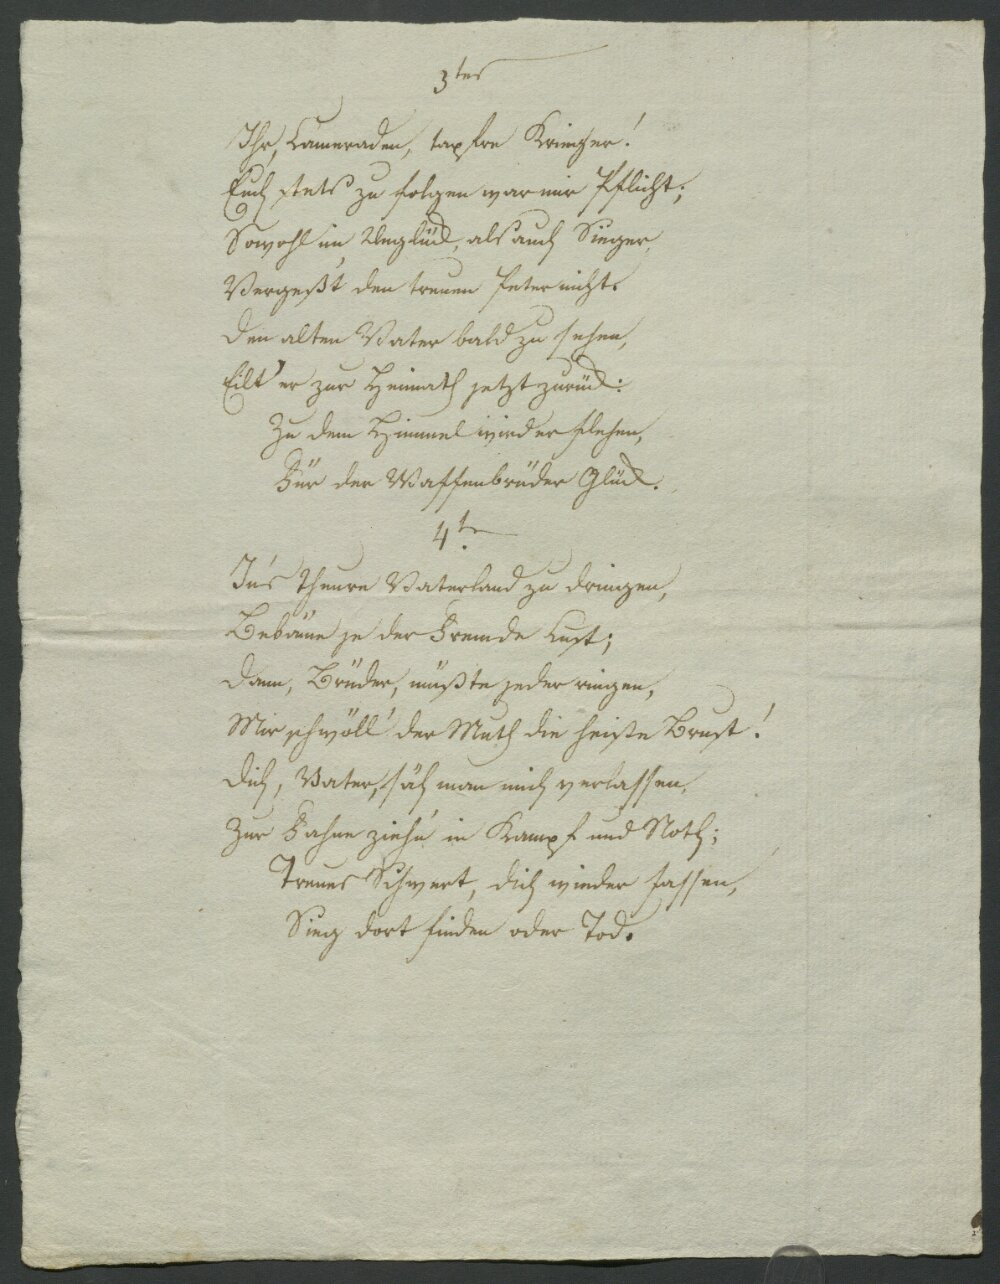 3tes
Ihr, Cameraden, tapfre Krieger!
Euch stets zu folgen war mir Pflicht;
Sowohl im Unglück, als auch Sieger,
Vergeßt den treuen Peter nicht.
Den alten Vater bald zu sehen,
Eilt' er zur Heimath jetzt zurück:
Zu dem Himmel wird er flehen,
Für der Waffenbrüder Glück.
4te
In's theure Vaterland zu dringen,
Bekäme je der Fremde Lust;
Dann, Brüder, müßte jeder ringen,
Mir schwöll' der Muth die heiße Brust!
Dich, Vater, säh man mich verlassen,
Zur Fahne ziehn in Kampf und Noth;
Treues Schwert, dich wieder fassen,
Sieg dort finden oder Tod.